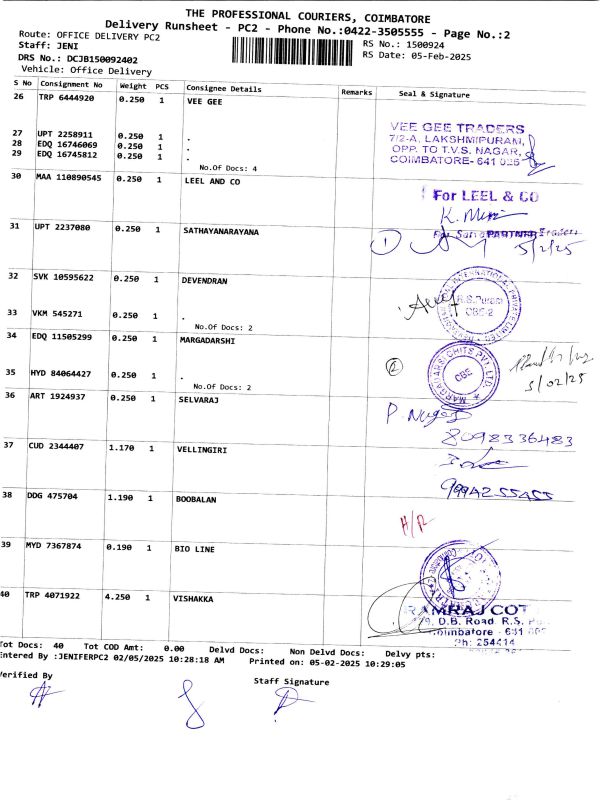 THE PROFESSIONAL COURIERS, COIMBATORE
Delivery Runsheet - PC2 - Phone No.:0422-3505555 - Page No.:2
Route: OFFICE DELIVERY PC2
RS No.: 1500924
Staff: JENI
RS Date: 05-Feb-2025
DRS No.: DCJB150092402
Vehicle: Office Delivery
S No Consignment No Weight PCS Consignee Details Remarks Seal & Signature
26 TRP 6444920 0.250 1 VEE GEE
VEE GEE TRADERS
7/2-A, LAKSHMIPURAM,
OPP. TO T.V.S. NAGAR,
COIMBATORE- 641 025
27 UPT 2258911 0.250 1 .
28 EDQ 16746069 0.250 1 .
29 EDQ 16745812 0.250 1 .
No.Of Docs: 4
30 MAA 110890545 0.250 1 LEEL AND CO
For LEEL & CO
PARTNER
31 UPT 2237080 0.250 1 SATHAYANARAYANA
1
5/2/25
32 SVK 10595622 0.250 1 DEVENDRAN
R.S.Puram
CBE-2
33 VKM 545271 0.250 1 .
No.Of Docs: 2
34 EDQ 11505299 0.250 1 MARGADARSHI
MARGADARSI CHITS PVT LTD
CBE
2
5/02/25
35 HYD 84064427 0.250 1 .
No.Of Docs: 2
36 ART 1924937 0.250 1 SELVARAJ
8098336483
37 CUD 2344407 1.170 1 VELLINGIRI
9994255455
38 DDG 475704 1.190 1 BOOBALAN
H/R
39 MYD 7367874 0.190 1 BIO LINE
40 TRP 4071922 4.250 1 VISHAKKA
RAMRAJ COT
D.B. Road, R.S.
Coimbatore - 641
Ph: 254414
Tot Docs: 40 Tot COD Amt: 0.00 Delvd Docs: Non Delvd Docs: Delvy pts:
Entered By :JENIFERPC2 02/05/2025 10:28:18 AM Printed on: 05-02-2025 10:29:05
Verified By
Staff Signature